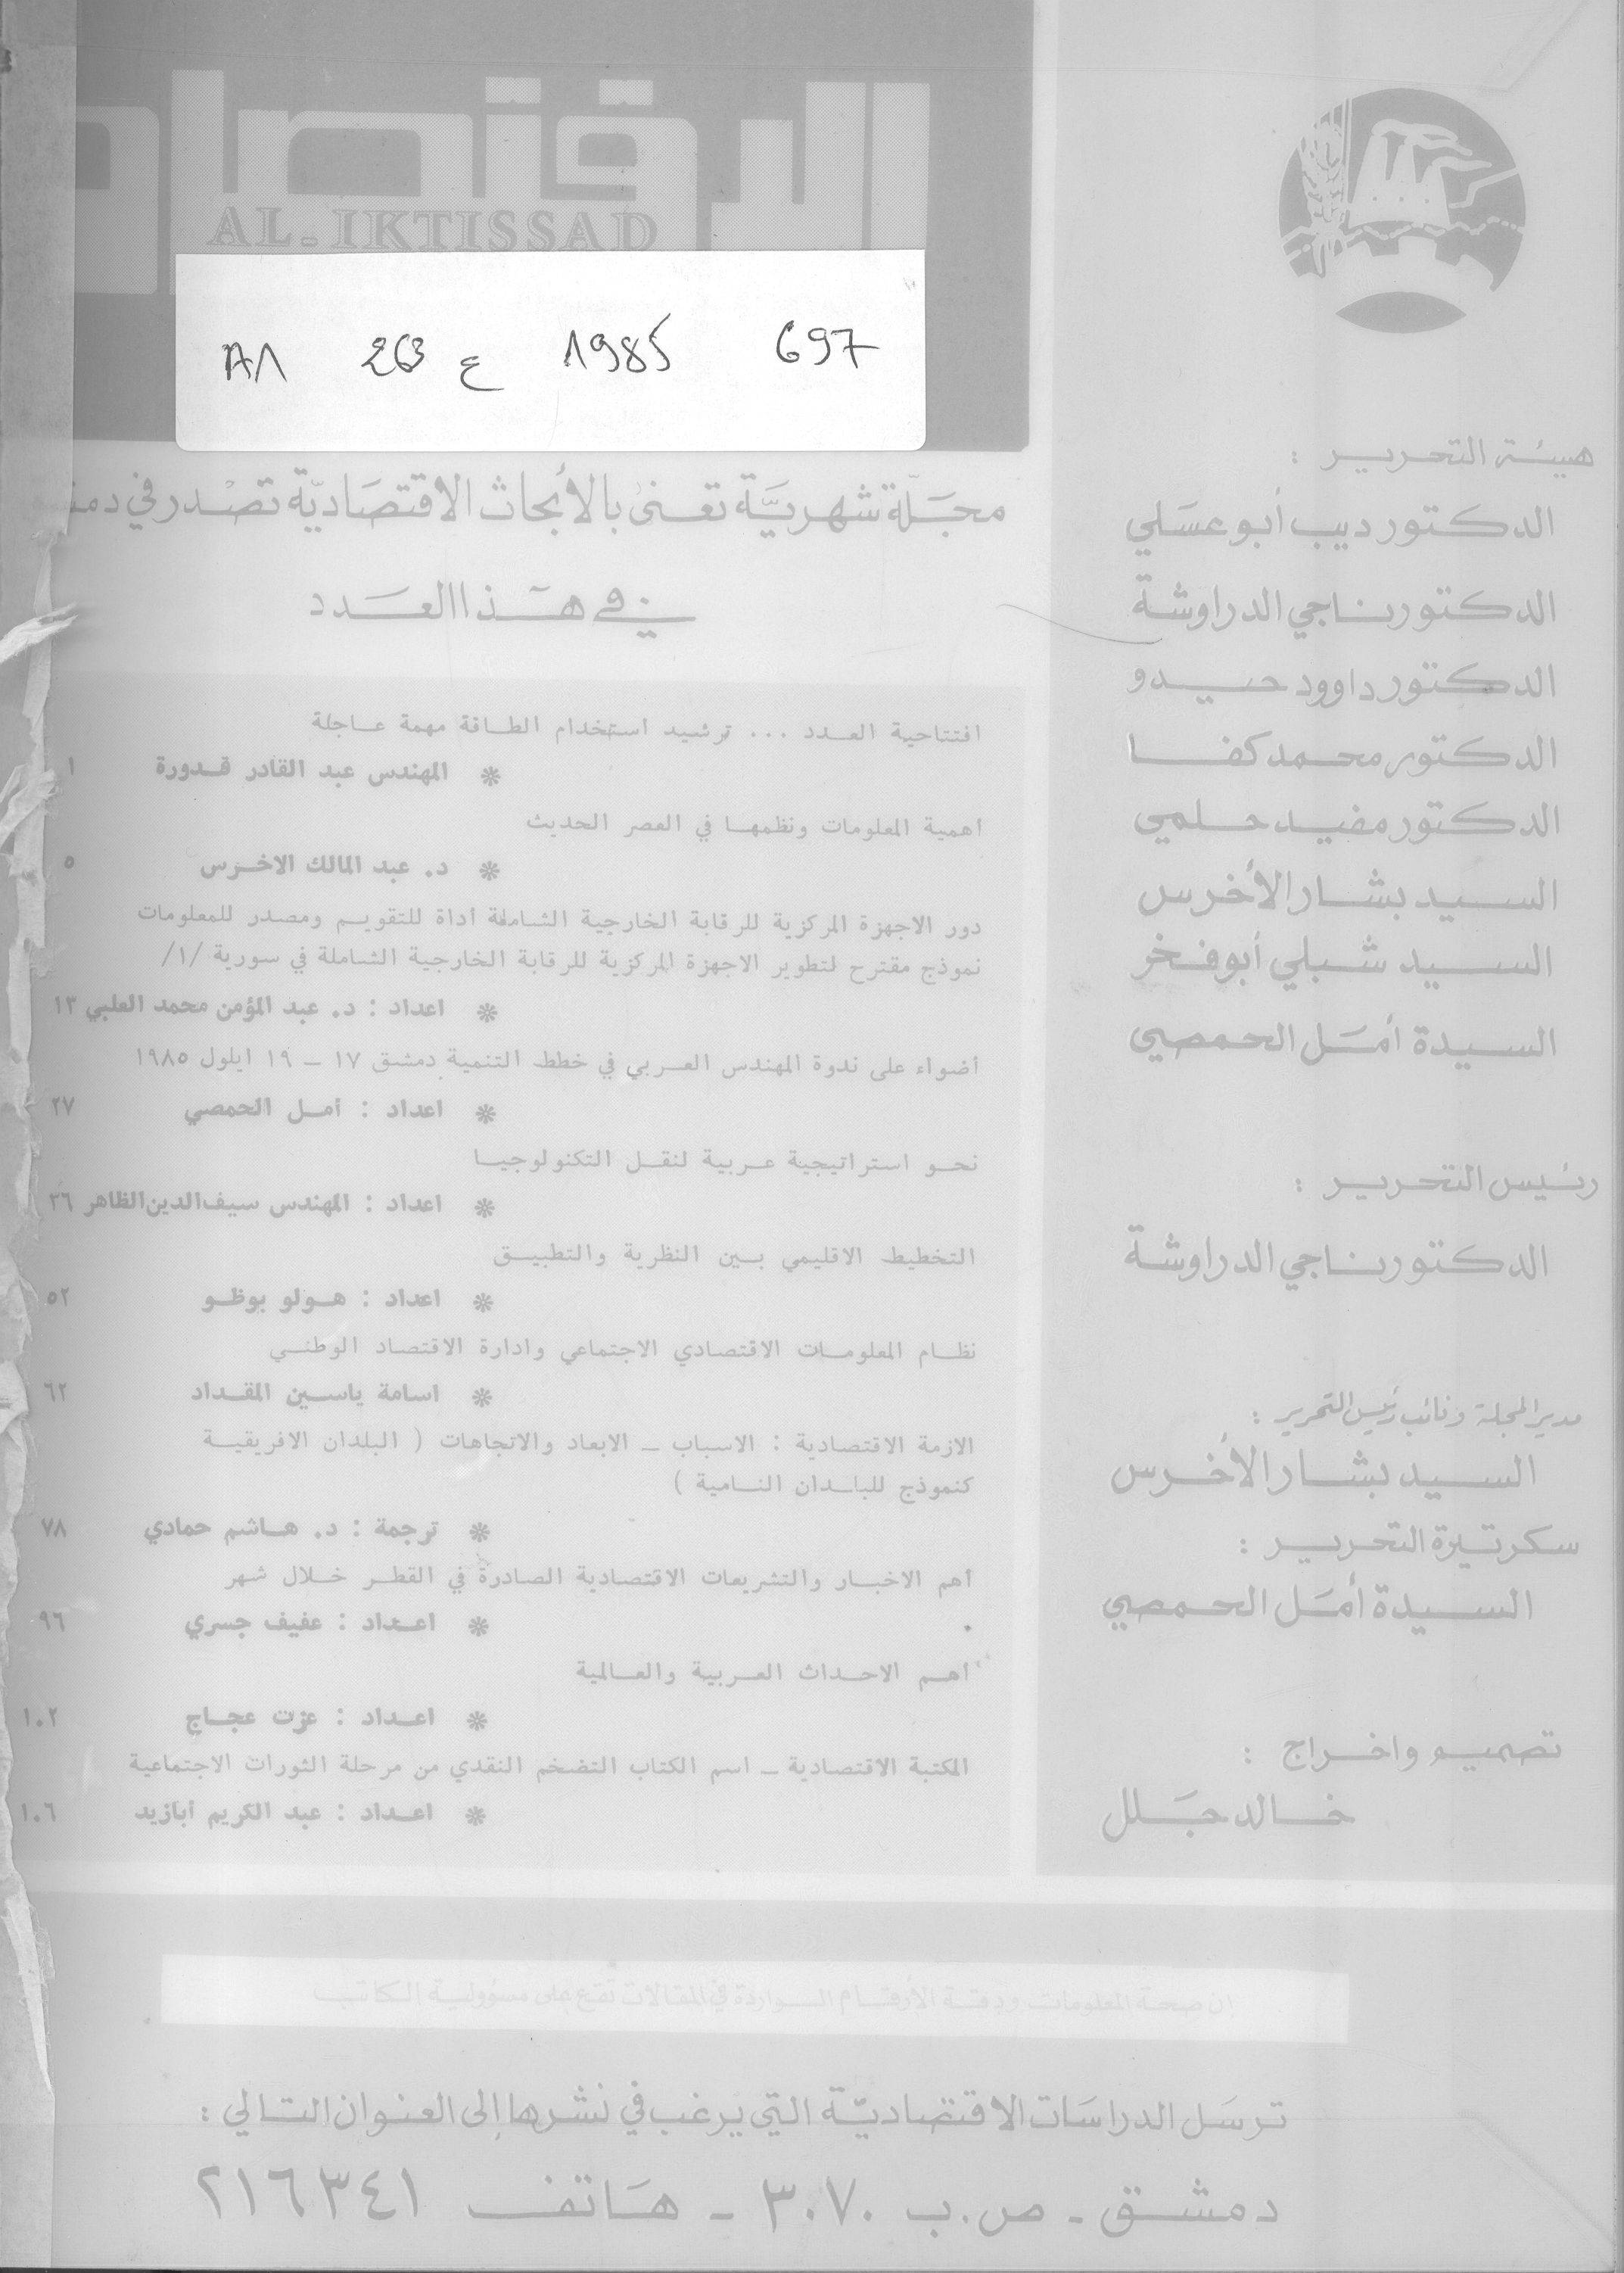 الاقتصاد
AL-IKTISSAD
A1 263 ع 1985 697
مجلة شهرية تعنى بالأبحاث الاقتصادية تصدر في
في هذا العدد
افتتاحية العدد ... ترشيد استخدام الطاقة مهمة عاجلة
* المهندس عبد القادر قدورة ١
أهمية المعلومات ونظمها في العصر الحديث
* د. عبد المالك الاخرس ٥
دور الاجهزة المركزية للرقابة الخارجية الشاملة أداة للتقويم ومصدر للمعلومات
نموذج مقترح لتطوير الاجهزة المركزية للرقابة الخارجية الشاملة في سورية /١/
* اعداد : د. عبد المؤمن محمد العلبي ١٣
أضواء على ندوة المهندس العربي في خطط التنمية دمشق ١٧ - ١٩ ايلول ١٩٨٥
* اعداد : أمل الحمصي ٢٧
نحو استراتيجية عربية لنقل التكنولوجيا
* اعداد : المهندس سيف الدين الظاهر ٣٦
التخطيط الاقليمي بين النظرية والتطبيق
* اعداد : هولو بوظو ٥٢
نظام المعلومات الاقتصادي الاجتماعي وادارة الاقتصاد الوطني
* اسامة ياسين المقداد ٦٢
الازمة الاقتصادية : الاسباب - الابعاد والاتجاهات ( البلدان الافريقية
كنموذج للبلدان النامية )
* ترجمة : د. هاشم حمادي ٧٨
أهم الاخبار والتشريعات الاقتصادية الصادرة في القطر خلال شهر
* اعداد : عفيف جسري ٩٦
أهم الاحداث العربية والعالمية
* اعداد : عزت عجاج ١٠٢
المكتبة الاقتصادية - اسم الكتاب التضخم النقدي من مرحلة الثورات الاجتماعية
* اعداد : عبد الكريم أبازيد ١٠٦
هيئة التحرير :
الدكتور ديب أبو عسلي
الدكتور ناجي الدراوشة
الدكتور داوود حيدو
الدكتور محمد كفا
الدكتور مفيد حلمي
السيد بشار الأخرس
السيد شبلي أبو فخر
السيدة أمل الحمصي
رئيس التحرير :
الدكتور ناجي الدراوشة
مدير المجلة ونائب رئيس التحرير :
السيد بشار الأخرس
سكرتيرة التحرير :
السيدة أمل الحمصي
تصميم واخراج :
خالد جلل
إن صحة المعلومات ودقة الأرقام الواردة في المقالات تقع على مسؤولية الكاتب
ترسل الدراسات الاقتصادية التي يرغب في نشرها إلى العنوان التالي :
دمشق - ص.ب ٣٠٧٠ - هاتف ٢١٦٣٤١